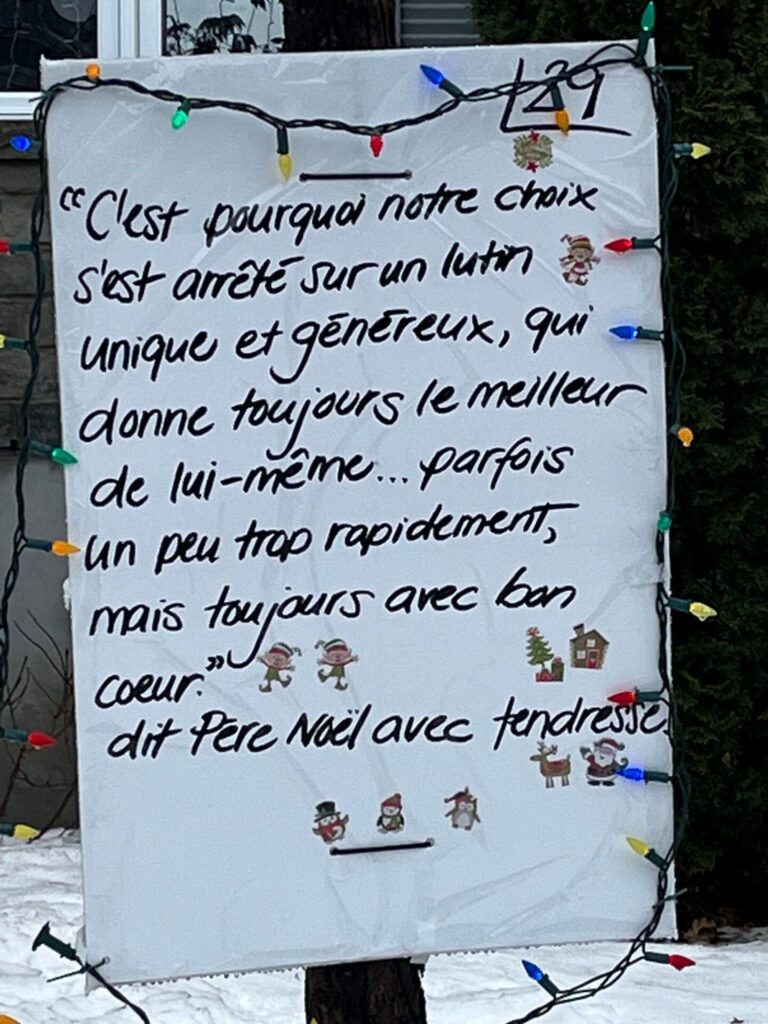 29
“C'est pourquoi notre choix
s'est arrêté sur un lutin
unique et généreux, qui
donne toujours le meilleur
de lui-même... parfois
un peu trop rapidement,
mais toujours avec bon
coeur.”
dit Père Noël avec tendresse.